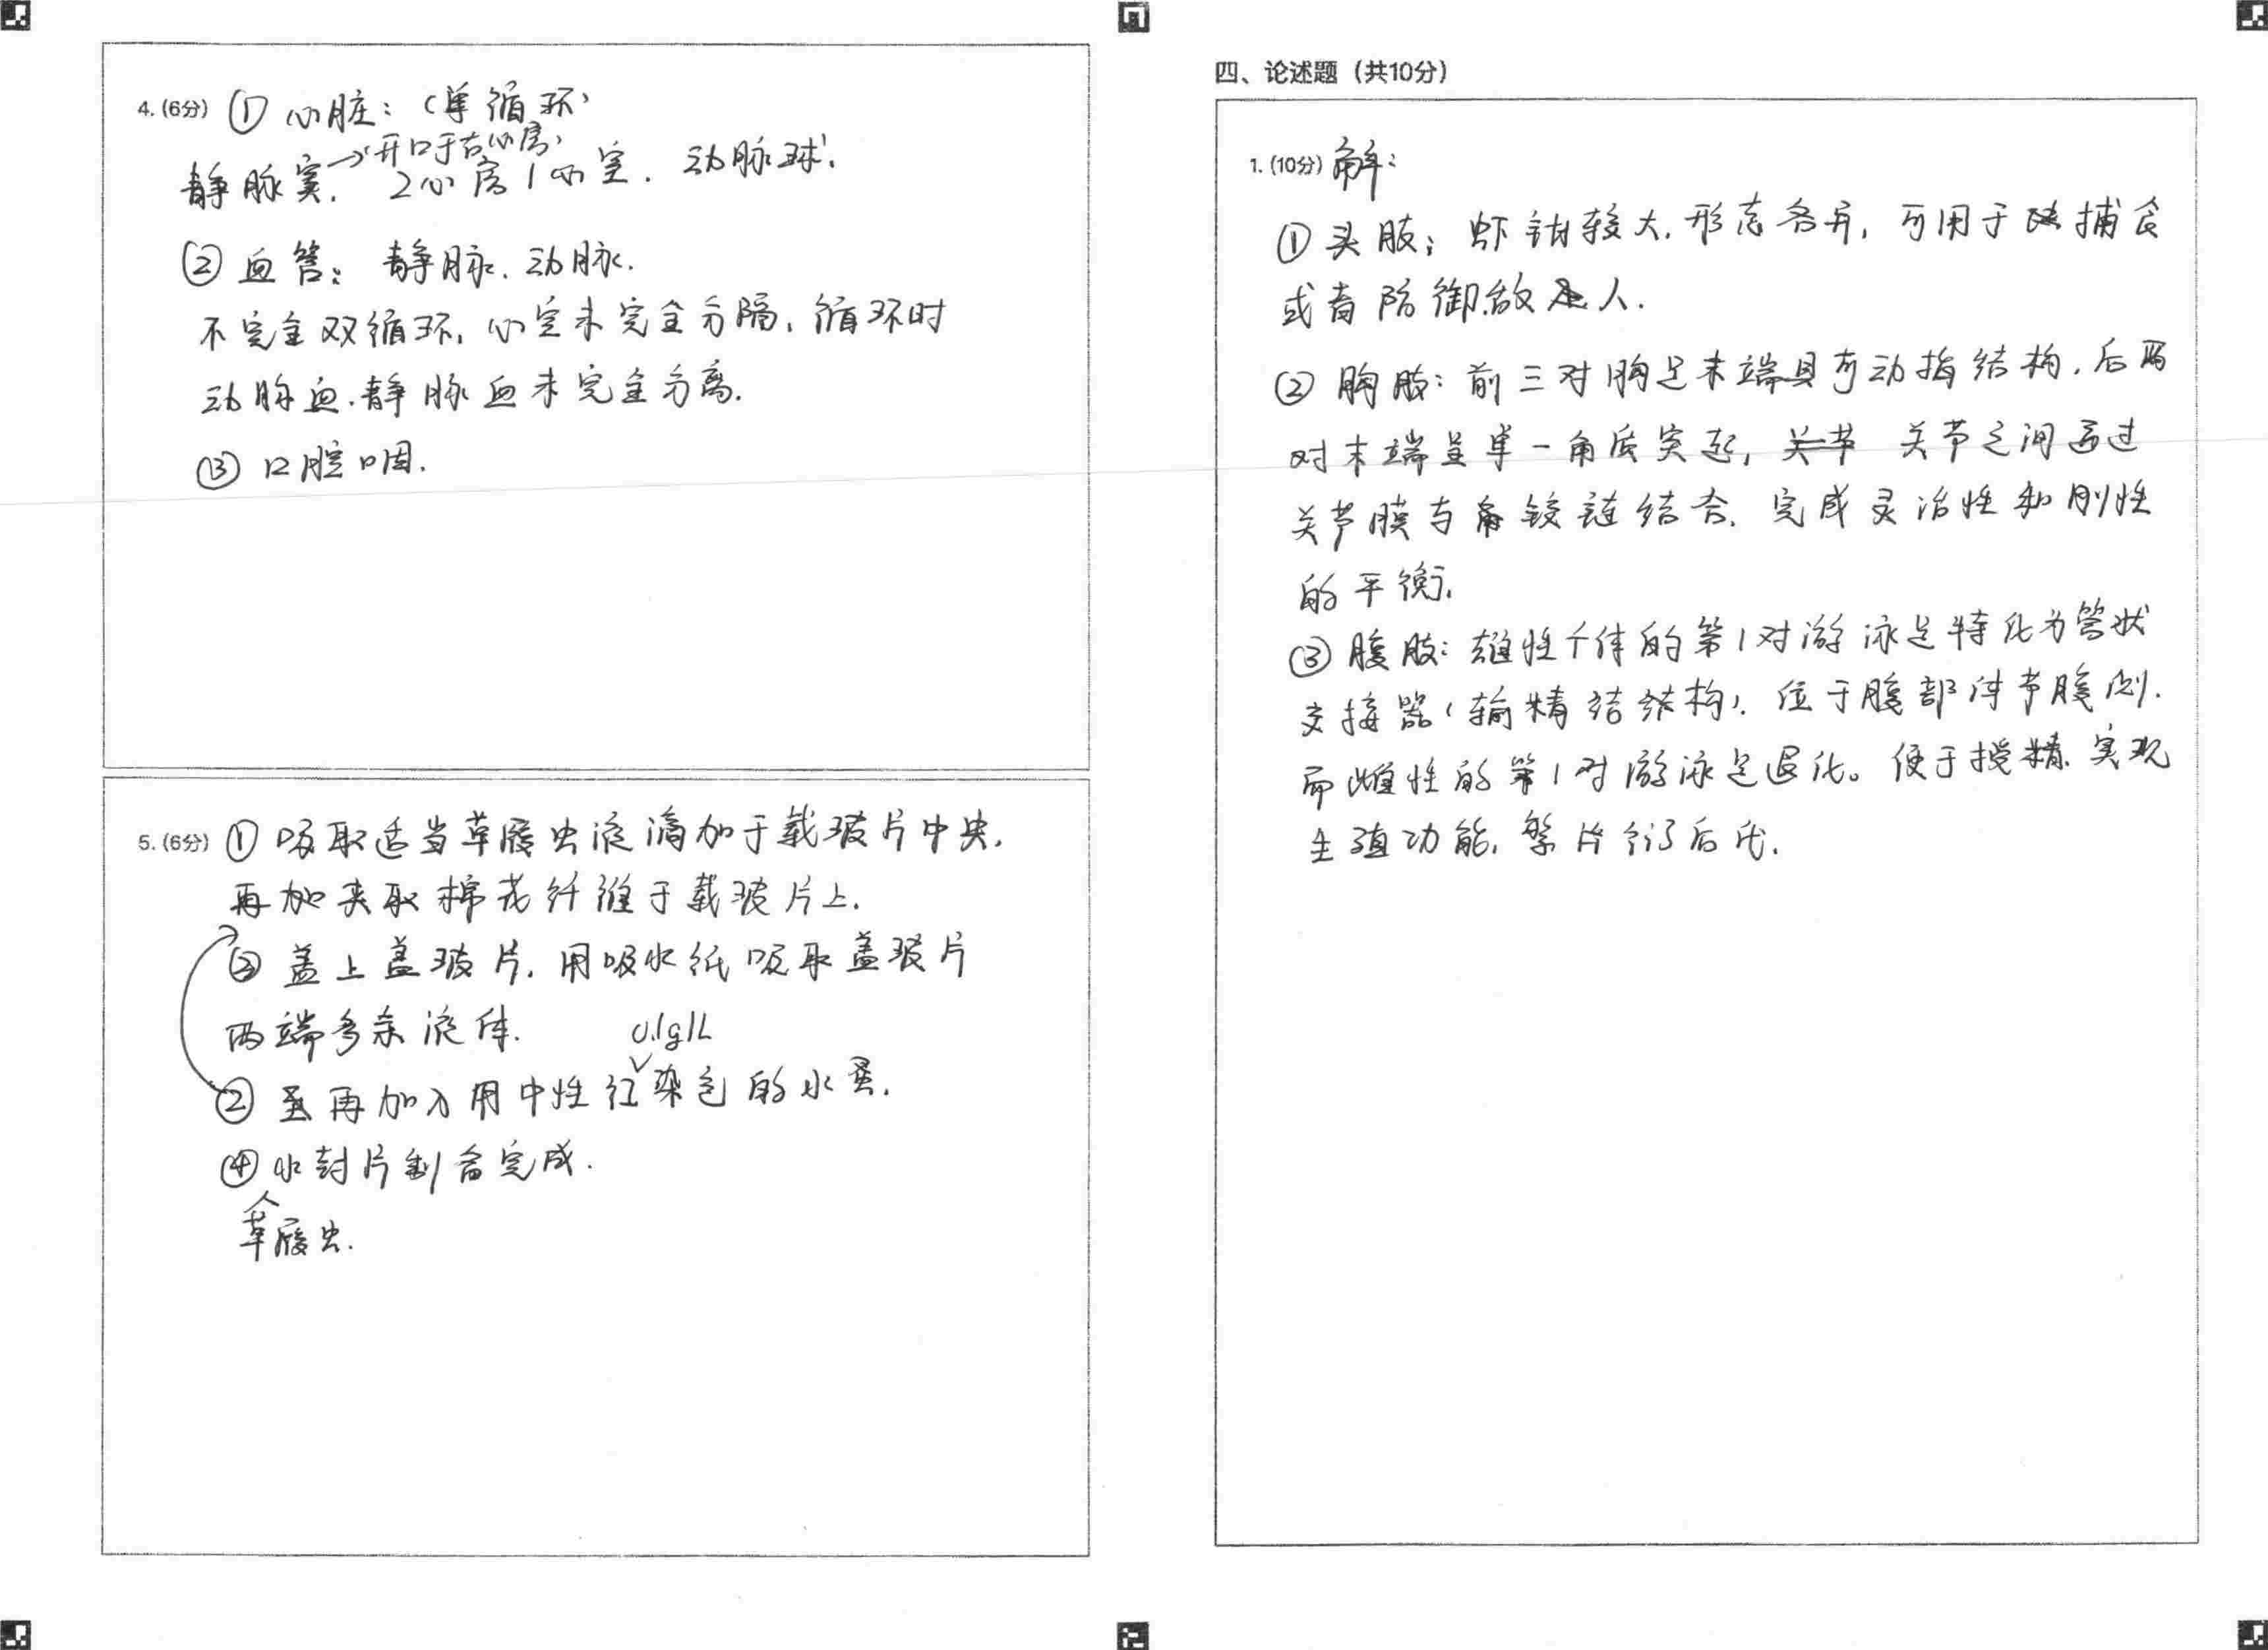 4. (6分) ① 心脏：（单循环）
→（开口于右心房）
静脉窦. 2心房1心室. 动脉球.
② 血管：静脉. 动脉.
不完全双循环, 心室未完全分隔, 循环时
动脉血.静脉血未完全分离.
③ 口腔咽.
5. (6分) ① 吸取适当草履虫液滴加于载玻片中央.
再加夹取棉花纤维于载玻片上.
③ 盖上盖玻片. 用吸水纸吸取盖玻片
两端多余液体.
0.1g/L
② 再加入用中性红染色的水蚤.
④ 水封片制备完成.
草履虫.
四、论述题（共10分）
1. (10分) 解：
① 头肢：虾钳较大. 形态各异, 可用于捕食
或者防御.敌人.
② 胸肢：前三对胸足末端具可动指结构. 后两
对末端呈单一角质突起, 关节 关节之间通过
关节膜与铰链结合. 完成灵活性和刚性
的平衡.
③ 腹肢：雄性个体的第1对游泳足特化为管状
交接器（输精结构）. 位于腹部体节腹侧.
而雌性的第1对游泳足退化。便于授精. 实现
生殖功能. 繁衍后代.